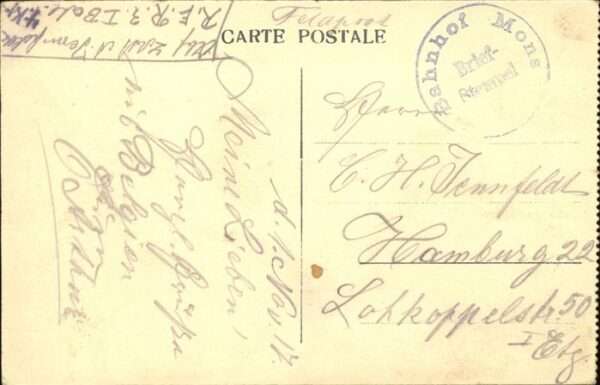 Feldpost
CARTE POSTALE
Bahnhof Mons
Brief-
Stempel
R. F. R. 3. I Batt.
d. 1. Nov. 17.
Meine Lieben!
Herzl. Grüße
aus Belgien
Euer
Arthur
Herrn
C. H. Jennfeldt
Hamburg 22
Lohkoppelstr. 50
I Etg.